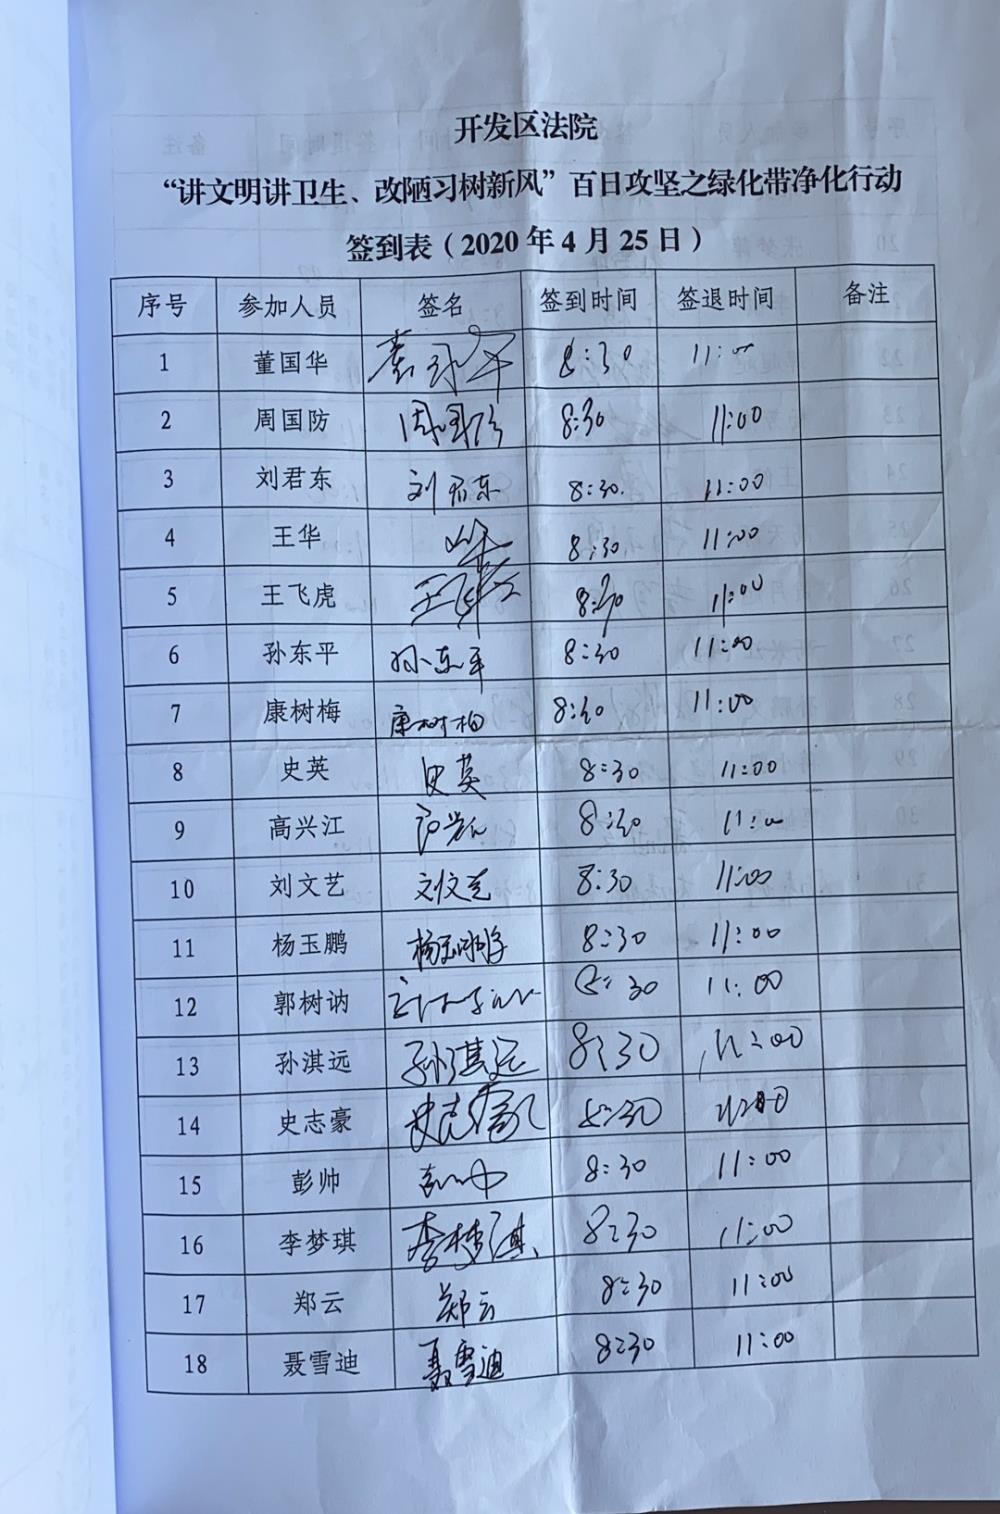 开发区法院
“讲文明讲卫生、改陋习树新风”百日攻坚之绿化带净化行动
签到表（2020年4月25日）
序号 参加人员 签名 签到时间 签退时间 备注
1 董国华 8:30 11:00
2 周国防 周国防 8:30 11:00
3 刘君东 刘君东 8:30 11:00
4 王华 8:30 11:00
5 王飞虎 8:30 11:00
6 孙东平 孙东平 8:30 11:00
7 康树梅 康树梅 8:30 11:00
8 史英 史英 8:30 11:00
9 高兴江 8:30 11:00
10 刘文艺 刘文艺 8:30 11:00
11 杨玉鹏 杨玉鹏 8:30 11:00
12 郭树讷 8:30 11:00
13 孙淇远 孙淇远 8:30 11:00
14 史志豪 史志豪 8:30 11:00
15 彭帅 8:30 11:00
16 李梦琪 李梦琪 8:30 11:00
17 郑云 郑云 8:30 11:00
18 聂雪迪 聂雪迪 8:30 11:00